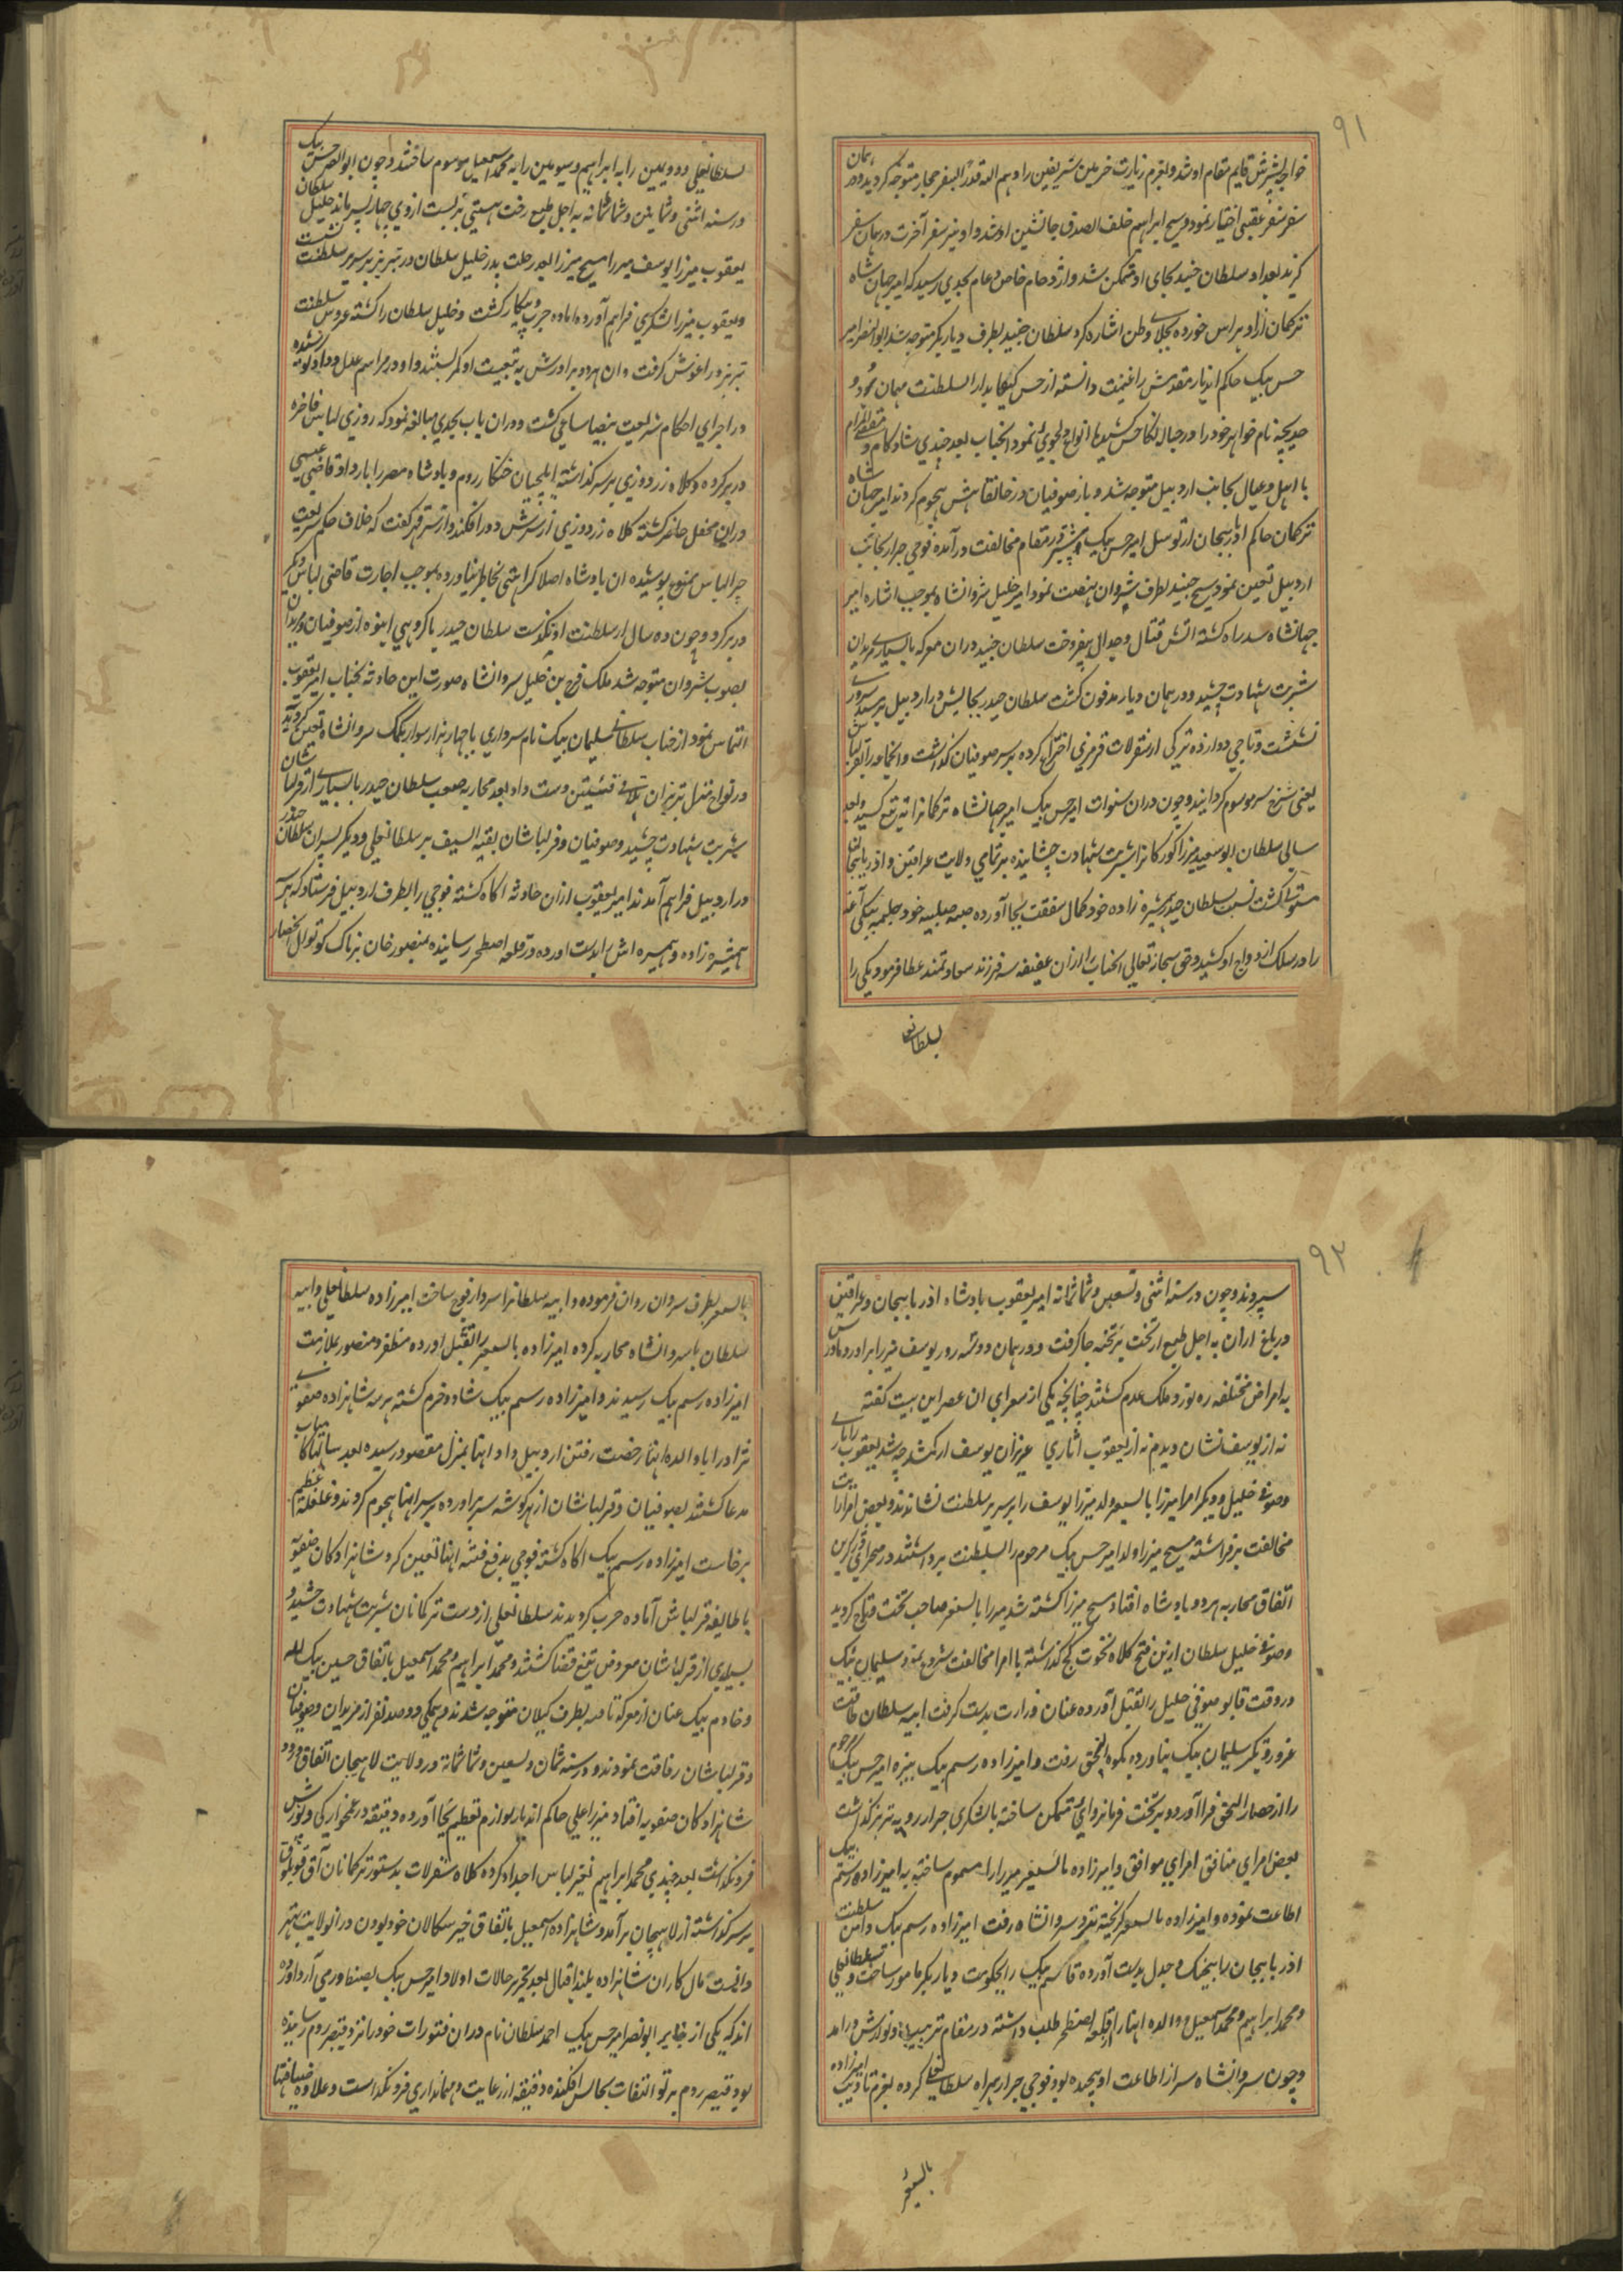 ۹۱
خواجه شیرش قایم مقام او شد و بعزم زیارت حرمین شریفین زاد هم الله قدرا بسفر حجاز متوجه گردیده در همان
سفر سفر عقبی اختیار نمود و شیخ ابراهیم خلف الصدق جانشین او شد و او نیز سفر آخرت در همان سفر
گزید بعد او سلطان جنید بجای او متمکن شد و ازدحام خاص و عام بحدی رسید که امیر جهان شاه
ترکمان ازو هراس خورده بجلای وطن اشاره کرد سلطان جنید بطرف دیار بکر متوجه شد ابوالنصر امیر
حسن بیک حاکم اندیار مقدمش را غنیمت دانسته از حسن کیفا بدار السلطنت مهمان خود و
خدیجه نام خواهر خود را در حباله نکاحش کشید با انواع دلجوئی نمود انجناب بعد چندی شاد کام و مقضی المرام
با اهل و عیال بجانب اردبیل متوجه شد و باز صوفیان در خانقاهش هجوم کردند امیر جهان شاه
ترکمان حاکم اذربایجان از توسل امیر حسن بیک بیشتر در مقام مخالفت درآمده فوجی جرار بجانب
اردبیل تعین نمود شیخ جنید بطرف شیروان نهضت نمود امیر خلیل شروانشاه بموجب اشاره امیر
جهانشاه سد راه گشته اتش قتال و جدال بیفروخت سلطان جنید دران معرکه با بسیاری مریدان
شربت شهادت چشید و در همان دیار مدفون گشت سلطان حیدر بجایش در اردبیل بر مسند سروری
نشست و تاجی دوازده ترکی از سقرلات قرمزی اختراع کرده بر سر صوفیان گذاشت و انجماعه را قزلباش
یعنی سرخ سر موسوم گردانید و چون دران سنوات امیر حسن بیک امیر جهانشاه ترکمانرا به تیغ کشید و بعد
سالی سلطان ابو سعید میرزا کورکانرا شربت شهادت چشانیده بر تمامی ولایت عراقین و اذربایجان
مستولی گشت نسبت سلطان حیدر همشیره زاده خود کمال شفقت بجا آورده صبیه صلبیه خود حلیمه بیگی آغا
را در سلک ازدواج او کشید و حق سبحانه تعالی انجناب را ازان عفیفه سه فرزند سعادتمند عطا فرمود یکی را
بسلطانعلی
بسلطانعلی و دویمین را به ابراهیم و سیومین را به محمد اسمعیل موسوم ساختند و چون ابوالنصر حسن بیک
در سنه اثنی و ثمانین و ثمانمائة به اجل طبیع رخت هستی بربست ازوی چهار پسر ماند خلیل سلطان
یعقوب میرزا یوسف میرزا مسیح میرزا بعد رحلت پدر خلیل سلطان در تبریز بر سریر سلطنت نشست
و یعقوب میرزا لشکری فراهم آورده اماده حرب و پیکار گشت و خلیل سلطان را کشته عروس سلطنت
تبریز در اغوش گرفت و ان هر دو برادرش به تبعیت او کمر بستند و او در مراسم عدل و داد کوشیده
در اجرای احکام شریعت بیضا ساعی گشت و دران باب بحدی مبالغه نمود که روزی لباس فاخره
در بر کرده و کلاه زردوزی بر سر گذاشته ایلچیان خنکار روم و بادشاه مصر را بار داد قاضی عیسی
دران محفل حاضر گشته کلاه زردوزی از سرش دور افکند و از ستر قهر گفت که خلاف حکم شریعت
چرا لباس ممنوع پوشیده ان بادشاه اصلا کراهتی بخاطر نیاورده بموجب اجازت قاضی لباس دیگر
در بر کرد و چون ده سال از سلطنت او بگذشت سلطان حیدر با گروهی انبوه از صوفیان و مریدان
بصوب شروان متوجه شد ملک فرخ بن خلیل سروانشاه صورت این حادثه بجناب امیر یعقوب
التماس نمود از جناب سلطانی سلیمان بیک نام سرداری با چهار هزار سوار بکمک سروانشاه تعین گردید
در نواح منزل تبریزان تلاقی فئتین دست داد بعد محاربه صعب سلطان حیدر با بسیاری از قزلباشان
شربت شهادت چشید و صوفیان و قزلباشان بقیه السیف بر سلطانعلی و دیگر پسران سلطان حیدر
در اردبیل فراهم آمدند امیر یعقوب ازان حادثه آگاه گشته فوجی را بطرف اردبیل فرستاد که هر سه
همشیره زاده و همشیره اش را بدست اورده در قلعه اصطخر رسانیده بمنصور خان بزناک کوتوال انحصار
۹۲
سپردند و چون در سنه اثنی و تسعین و ثمانمائة امیر یعقوب بادشاه اذربایجان و عراقین
در باغ اران به اجل طبع از تخت بر تخته جا گرفت و در همان دو سه روز یوسف میرزا برادر و مادرش
به امراض مختلفه ره نورد ملک عدم گشتند چنانچه یکی از شعرای ان عصر این بیت گفته
نه از یوسف نشان دیدم نه از یعقوب اثاری عزیزان یوسف ار گم شد چه شد یعقوب را باری
و صوفی خلیل و دیگر امرا میرزا بایسنغر ولد میرزا یوسف را بر سریر سلطنت نشاندند و بعض امرا رایت
مخالفت برافراشته مسیح میرزا ولد امیر حسن بیک مرحوم را بسلطنت برداشتند در صحرای
اتفاق محاربه هر دو بادشاه افتاد مسیح میرزا کشته شد میرزا بایسنغر صاحب تخت و تاج گردید
و صوفی خلیل سلطان ازین فتح کلاه نخوت کج گذاشته با امرا مخالفت شروع نمود سلیمان بیک
در وقت قابو صوفی خلیل را بقتل آورده عنان وزارت بدست گرفت ایبه سلطان طاقت
غرور و تکبر سلیمان بیک نیاورده بکوه النجق رفت و امیرزاده رستم بیک نبیره امیر حسن بیک مرحوم
را از حصار النجق فرا آورده بر تخت فرمانروائی متمکن ساخته با لشکری جرار رو به تبریز گذاشت
بعض امرای منافق امرای موافق و امیرزاده بایسنغر میرزا را مسموم ساخته به امیرزاده رستم بیک
اطاعت نموده و امیرزاده بایسنغر گریخته نزد سروانشاه رفت امیرزاده رستم بیک دامن سلطنت
اذربایجان را بیجنگ و جدل بدست آورده قاسم بیک را بحکومت دیار بکر مامور ساخت و سلطانعلی
و محمد ابراهیم و محمد اسمعیل و والده اینان از قلعه اصطخر طلب داشته در مقام تربیت و نوازش درامد
و چون سروانشاه سر از اطاعت او پیچیده بود فوجی جرار همراه سلطانعلی کرده بعزم تادیب امیرزاده
بایسنغر
بایسنغر بطرف سروان روان فرموده و ایبه سلطانرا سردار فوج ساخت امیرزاده سلطانعلی و ایبه
سلطان با سروانشاه محاربه کرده امیرزاده بایسنغر را بقتل اورده مظفر و منصور بملازمت
امیرزاده رستم بیک رسیدند و امیرزاده رستم بیک شاد و خرم گشته هر سه شاهزاده صفوی
نژاد را با والده اینان رخصت رفتن اردبیل داد اینها بمنزل مقصود رسیده بعد سالها کامیاب
مدعا گشتند بصوفیان و قزلباشان از هر گوشه سر براورده بر سر اینها هجوم کردند و غلغله عظیم
برخاست امیرزاده رستم بیک آگاه گشته فوجی بدفع فتنه اینها تعین کرد شاهزادگان صفویه
با طایفه قزلباش آماده حرب گردیدند سلطانعلی از دست ترکمانان شربت شهادت چشید و
بسیاری از قزلباشان معروض تیغ قضا گشتند و محمد ابراهیم و محمد اسمعیل باتفاق حسین بیک لله
و خادم بیک عنان از معرکه تافته بطرف گیلان متوجه شدند و همگی دو صد نفر از مریدان و صوفیان
و قزلباشان رفاقت نمودند و در سنه ثمان و تسعین و ثمانمائة در ولایت لاهیجان اتفاق ورود
شاهزادگان صفویه افتاد میرزا علی حاکم اندیار لوازم تعظیم بجا آورده دقیقه در غمخوارگی و نورزش
فرونگذاشت بعد چندی محمد ابراهیم تغیر لباس اجداد کرده کلاه سقرلات بدستور ترکمانان آق قوینلو
بر سر گذاشته از لاهیجان برآمد و شاهزاده اسمعیل باتفاق خیر سگالان خود بودن در انولایت بهتر
دانست مال کاران شاهزاده بلند اقبال بعد تحریر حالات اولاد امیر حسن بیک بصنطه رمی آرد آورده
اند که یکی از نبایر ابو نصر امیر حسن بیک احمد سلطان نام دران فتورات خود را نزد قیصر روم رسانیده
بود قیصر روم پرتو التفات بحالش افکنده دقیقه از رعایت و مهمانداری فرونگذاشت و علاوه